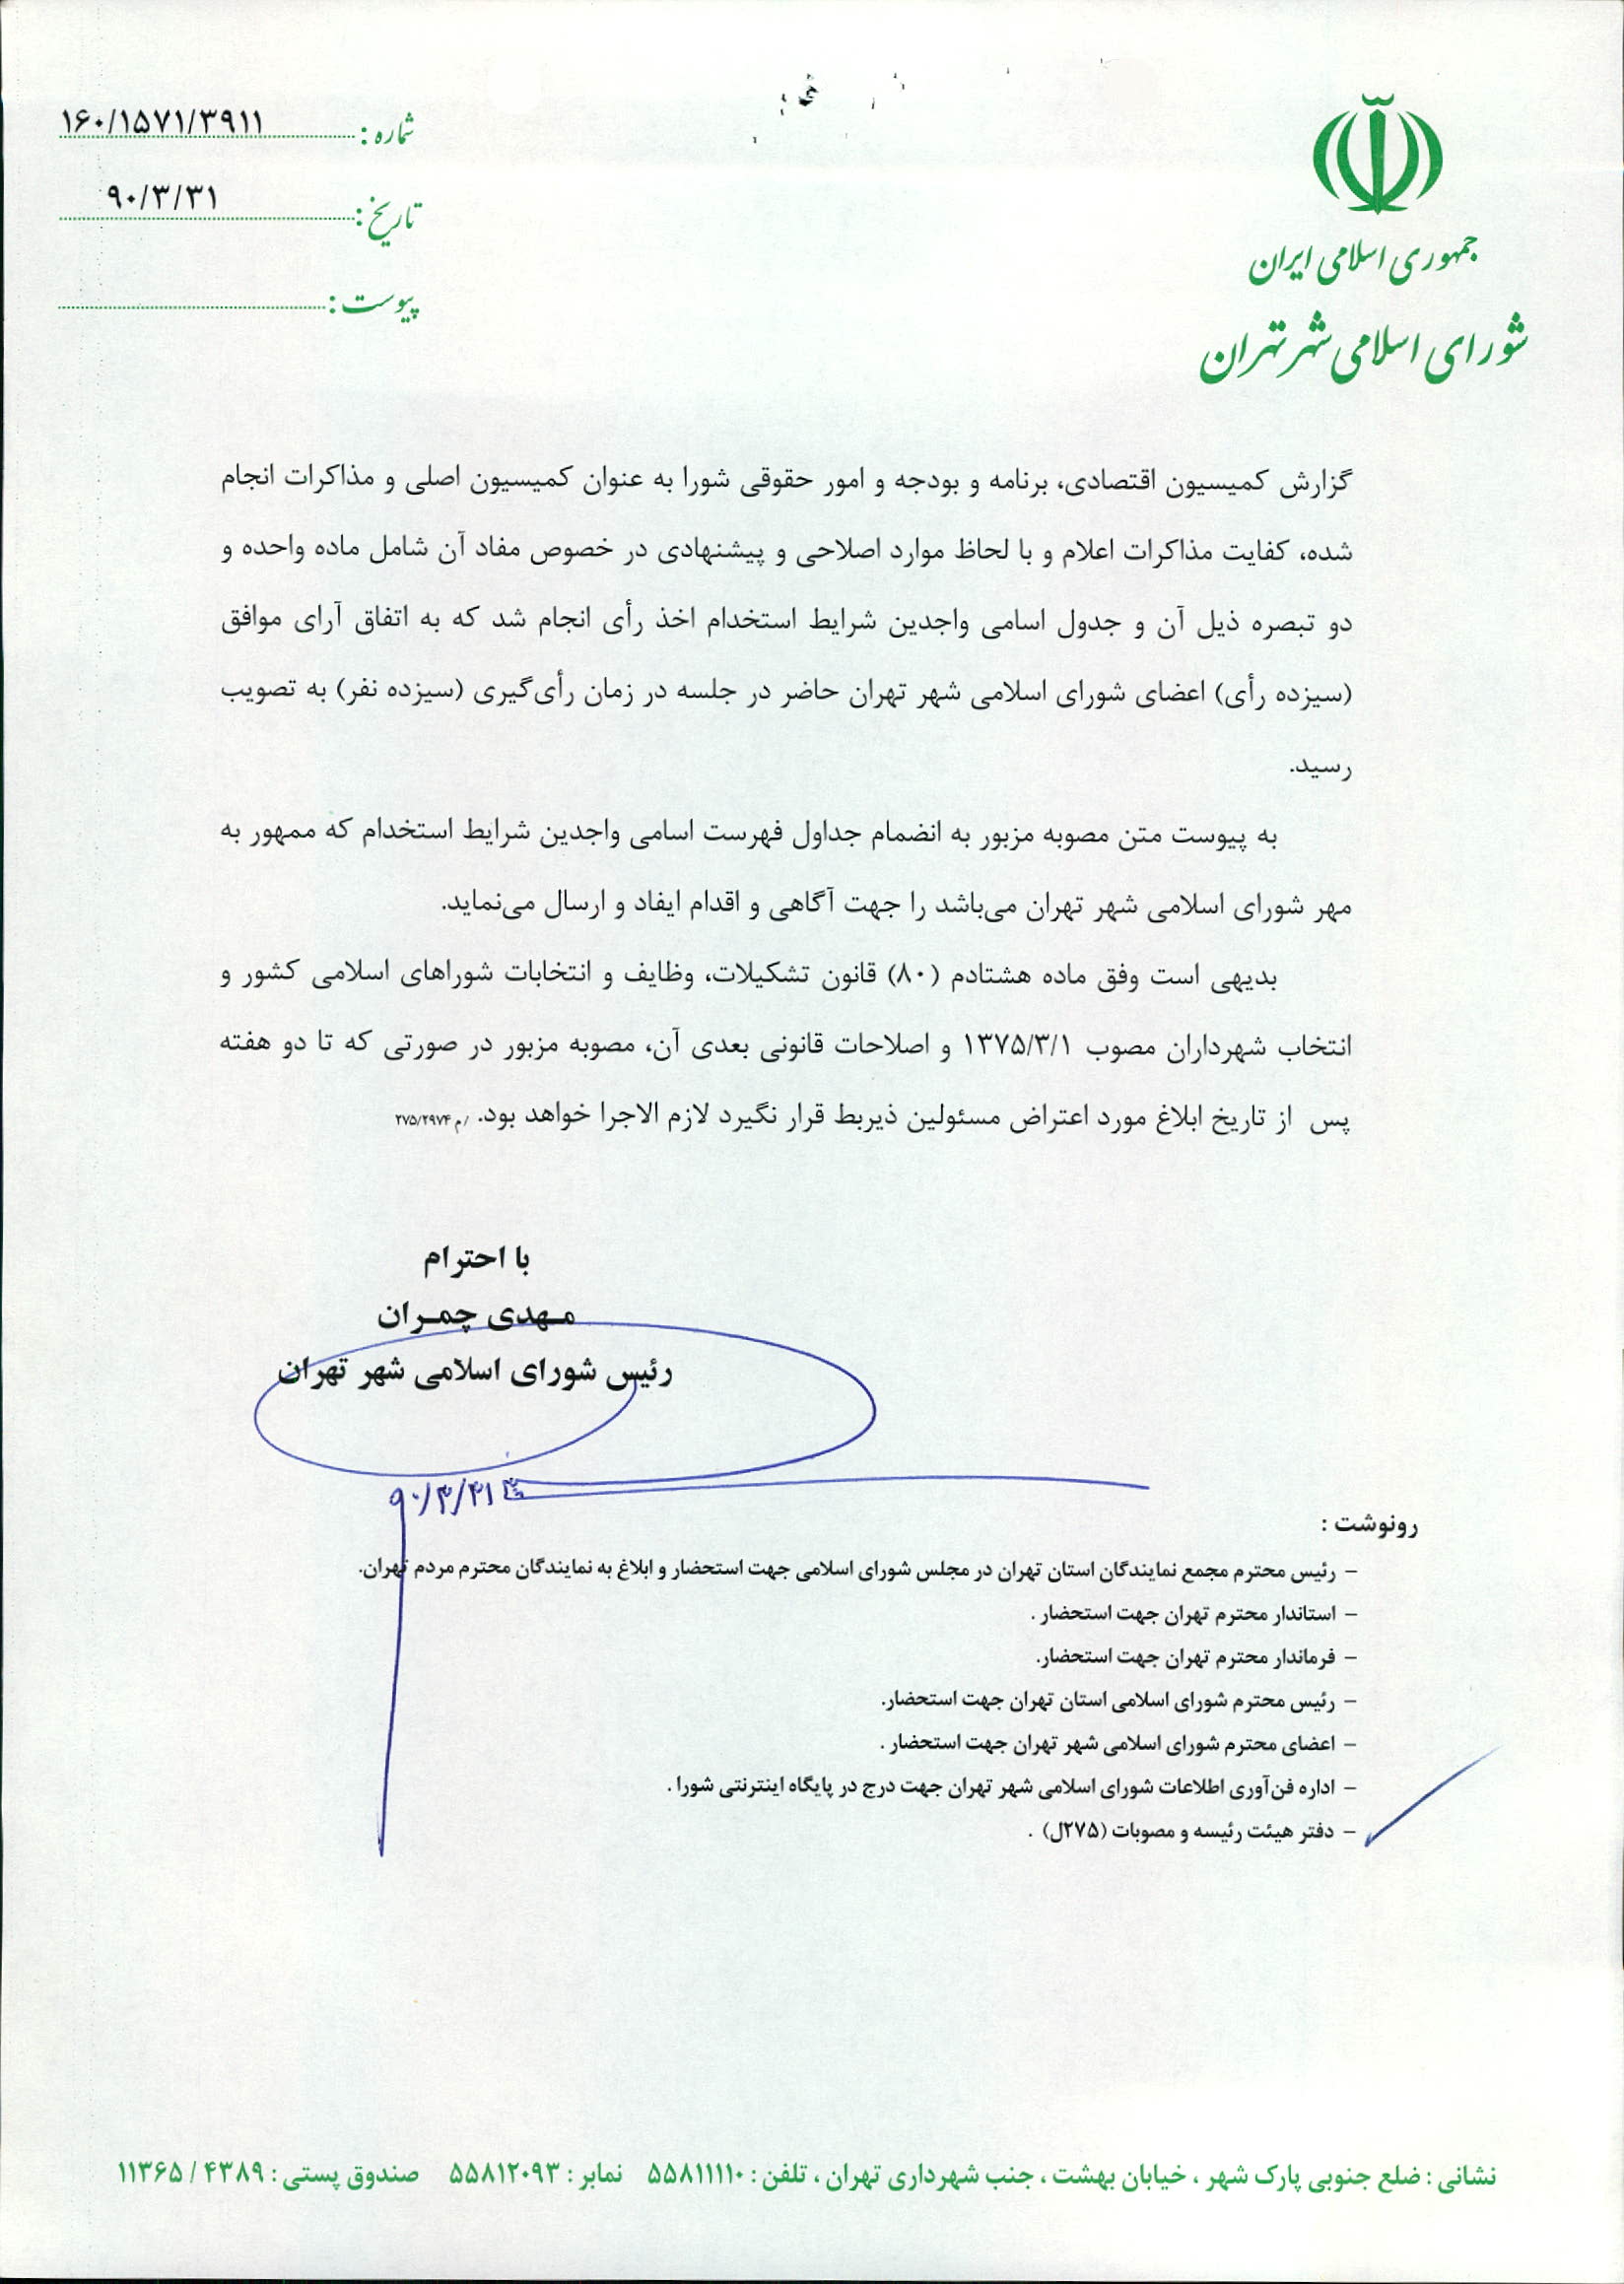 جمهوری اسلامی ایران
شورای اسلامی شهر تهران
شماره : ۱۶۰/۱۵۷۱/۳۹۱۱
تاریخ : ۹۰/۳/۳۱
پیوست :
گزارش کمیسیون اقتصادی، برنامه و بودجه و امور حقوقی شورا به عنوان کمیسیون اصلی و مذاکرات انجام
شده، کفایت مذاکرات اعلام و با لحاظ موارد اصلاحی و پیشنهادی در خصوص مفاد آن شامل ماده واحده و
دو تبصره ذیل آن و جدول اسامی واجدین شرایط استخدام اخذ رأی انجام شد که به اتفاق آرای موافق
(سیزده رأی) اعضای شورای اسلامی شهر تهران حاضر در جلسه در زمان رأی‌گیری (سیزده نفر) به تصویب
رسید.
به پیوست متن مصوبه مزبور به انضمام جداول فهرست اسامی واجدین شرایط استخدام که ممهور به
مهر شورای اسلامی شهر تهران می‌باشد را جهت آگاهی و اقدام ایفاد و ارسال می‌نماید.
بدیهی است وفق ماده هشتادم (۸۰) قانون تشکیلات، وظایف و انتخابات شوراهای اسلامی کشور و
انتخاب شهرداران مصوب ۱۳۷۵/۳/۱ و اصلاحات قانونی بعدی آن، مصوبه مزبور در صورتی که تا دو هفته
پس از تاریخ ابلاغ مورد اعتراض مسئولین ذیربط قرار نگیرد لازم الاجرا خواهد بود. /م ۲۷۵/۲۹۷۴
با احترام
مـهدی چمـران
رئیس شورای اسلامی شهر تهران
رونوشت :
- رئیس محترم مجمع نمایندگان استان تهران در مجلس شورای اسلامی جهت استحضار و ابلاغ به نمایندگان محترم مردم تهران.
- استاندار محترم تهران جهت استحضار .
- فرماندار محترم تهران جهت استحضار.
- رئیس محترم شورای اسلامی استان تهران جهت استحضار.
- اعضای محترم شورای اسلامی شهر تهران جهت استحضار .
- اداره فن‌آوری اطلاعات شورای اسلامی شهر تهران جهت درج در پایگاه اینترنتی شورا .
- دفتر هیئت رئیسه و مصوبات (۲۷۵ل) .
نشانی : ضلع جنوبی پارک شهر ، خیابان بهشت ، جنب شهرداری تهران ، تلفن : ۵۵۸۱۱۱۱۰ نمابر : ۵۵۸۱۲۰۹۳ صندوق پستی : ۴۳۸۹ / ۱۱۳۶۵